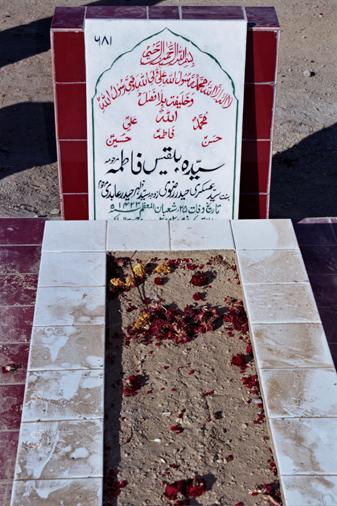 ۶۸۱
بسم الله الرحمن الرحیم
لا اله الا الله محمد رسول الله علی ولی الله وصی رسول الله
وخلیفته بلا فصل
الله
محمد علی
حسن فاطمه حسین
سیدہ بلقیس فاطمہ مرحومہ
بنت سید عسکری حیدر رضوی زوجہ سید حیدر عابدی
تاریخ وفات ۲۵ شعبان المعظم ۱۴۲۳ ھ